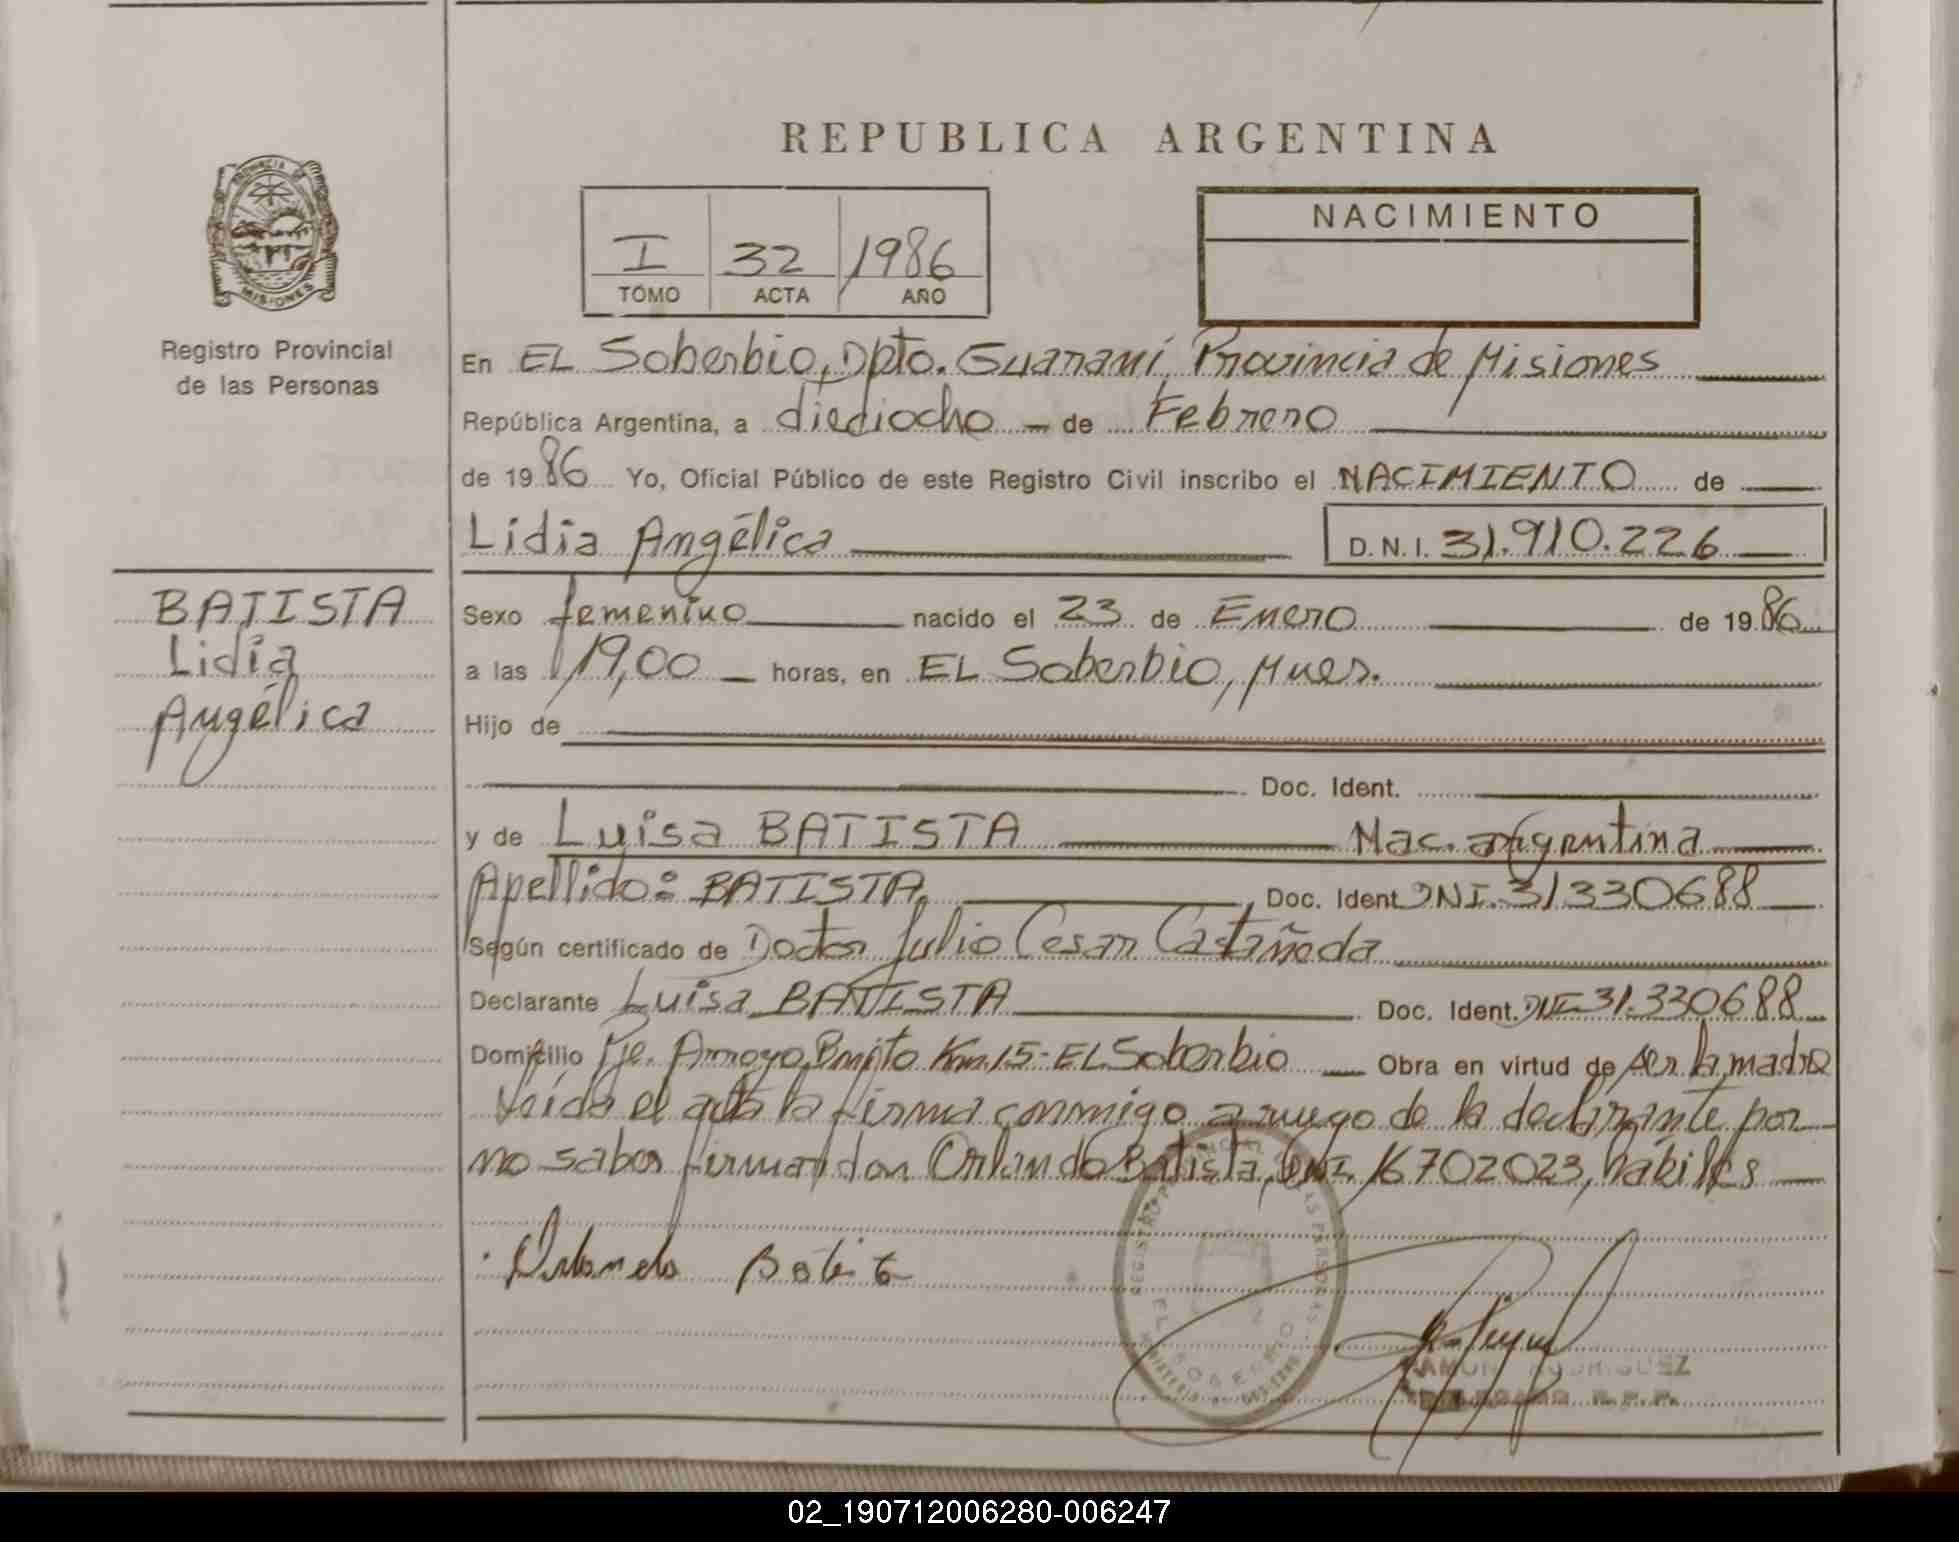 REPUBLICA ARGENTINA
PROVINCIA DE
MISIONES
Registro Provincial
de las Personas
I 32 1986
TOMO ACTA AÑO
NACIMIENTO
En EL Soberbio, Dpto. Guaraní, Provincia de Misiones
República Argentina, a diediocho - de Febrero
de 1986 Yo, Oficial Público de este Registro Civil inscribo el NACIMIENTO de
Lidia Angélica D.N.I. 31.910.226
BATISTA
Lidia
Angélica
Sexo femenino nacido el 23 de Enero de 1986
a las 19,00 horas, en EL Soberbio, Mnes.
Hijo de
Doc. Ident.
y de Luisa BATISTA Nac. argentina
Apellido: BATISTA. Doc. Ident DNI. 31330688
Según certificado de Doctor Julio Cesar Castañeda
Declarante Luisa BATISTA Doc. Ident. DNI 31.330688
Domicilio Pje. Arroyo Km. 15 - EL Soberbio Obra en virtud de ser la madre
Leída el acta la firma conmigo a ruego de la declarante por
no saber firmar don Orlando Batista, DNI. 16702023, hábiles
Orlando Batista
REGISTRO DE LAS PERSONAS
EL SOBERBIO
RAMON RODRIGUEZ
R.P.P.
02_190712006280-006247